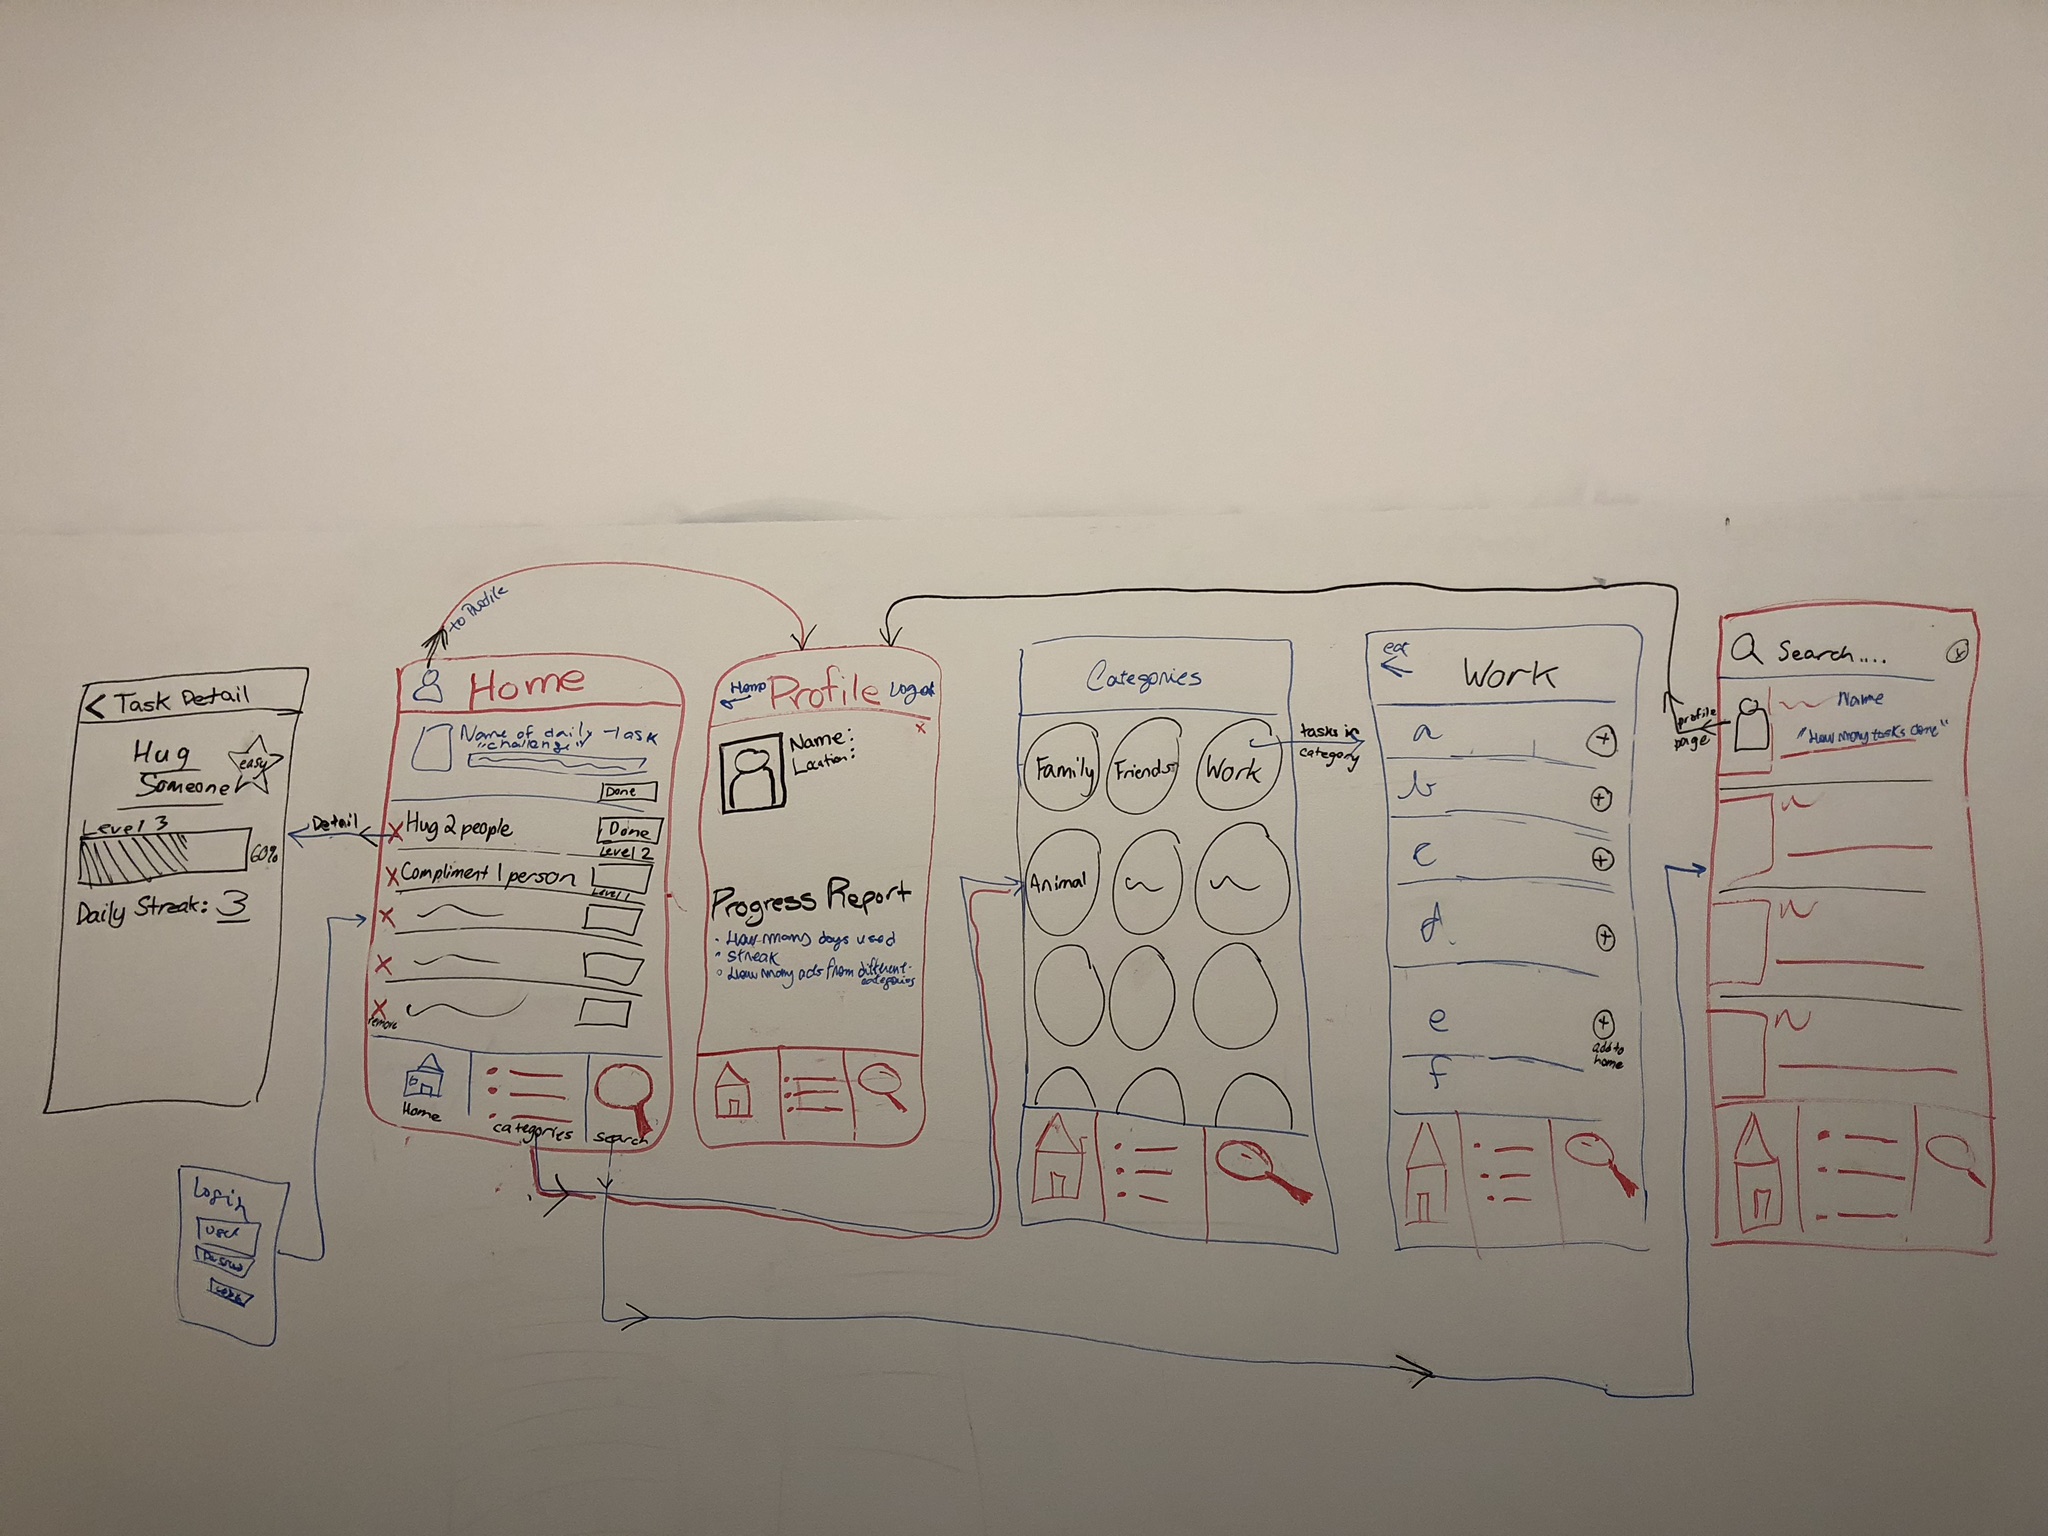 < Task Detail
Hug
Someone
easy
Level 3
60%
Daily Streak: 3
Detail
Login
User
to Profile
Home
Name of daily Task
"challenge"
Done
Hug 2 people
Done
Level 2
Compliment 1 person
Level 1
remove
Home
categories
search
Home
Profile
Logout
x
Name:
Location:
Progress Report
How many days used
streak
How many ads from different
categories
Categories
Family
Friends
Work
Animal
tasks in
category
Work
a
b
c
d
e
f
add to
home
profile
page
Search....
x
Name
"How many tasks done"